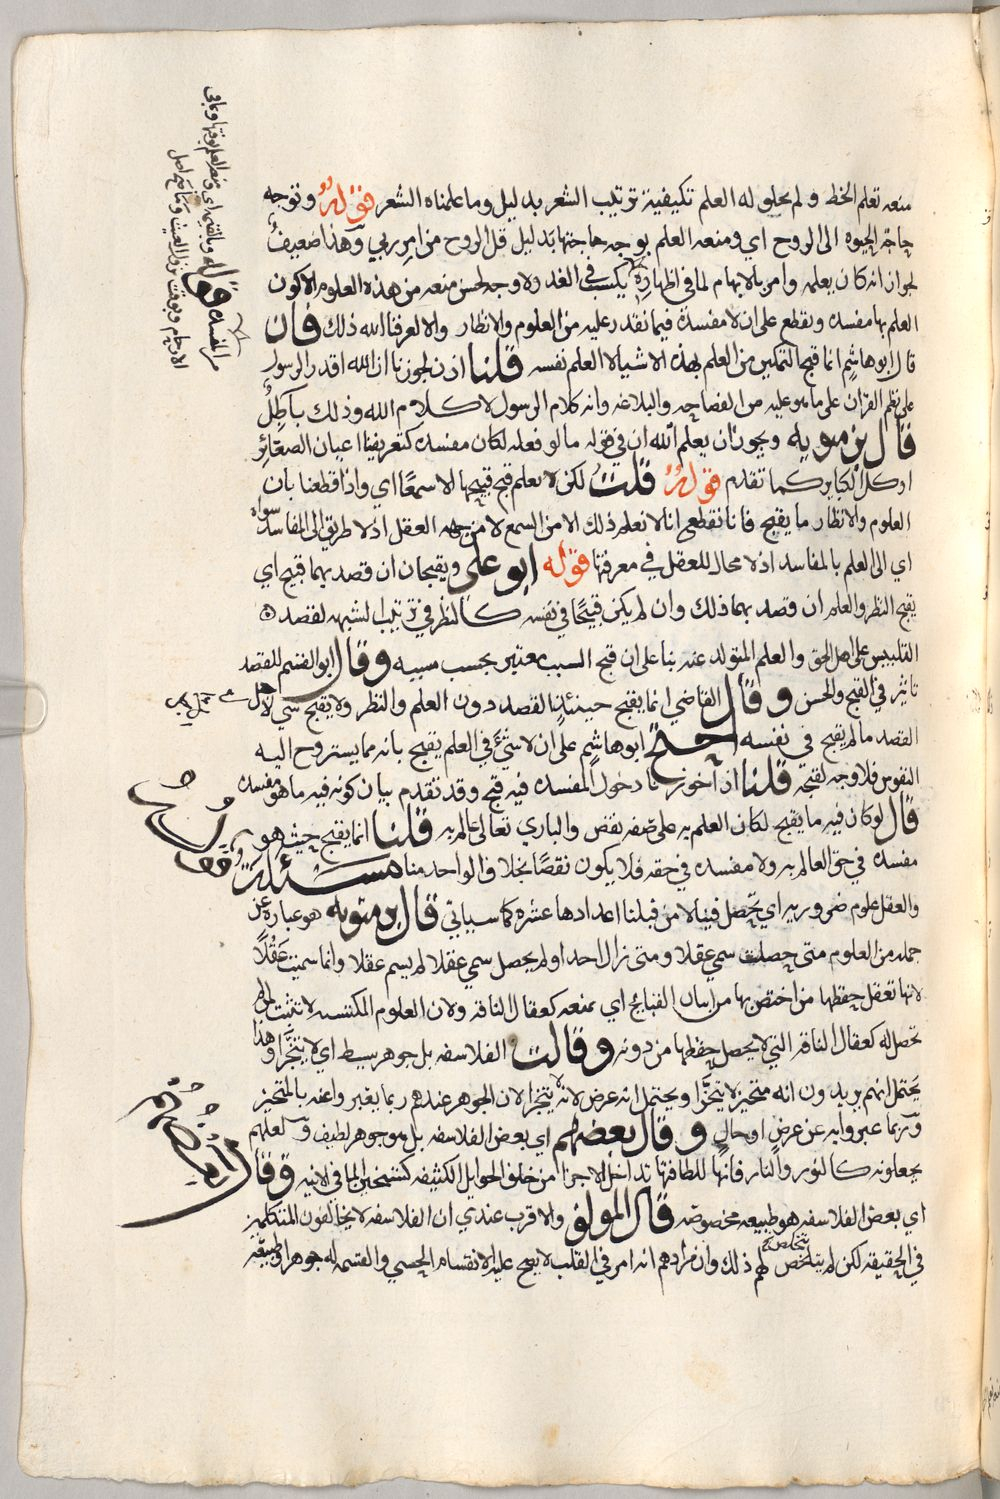 منعه تعلم الخط ولم يخلو له العلم بكيفية ترتيب الشعر بدليل وما علمناه الشعر قوله وتوجه
حاجة الحيوه الى الروح اي ومنعه العلم بوجه حاجتها بدليل قل الروح من امر ربي وهذا ضعيف
لجواز انه كان يعلمه وامر بالابهام لما في اظهاره يكسب في الغد ولا وجه لحسن منعه من هذه العلوم الا كون
العلم بها مفسده ويقطع على ان لا مفسدة فيما نقدر عليه من العلوم والانظار والا لعرفنا الله ذلك قال
قال ابو هاشم انما قبح التمكين من العلم بهذه الاشيا لا العلم نفسه قلنا اذن لجوزنا ان الله اقدر الرسول
على نظم القران على ما هو عليه من الفصاحه والبلاغه وانه كلام الرسول لا كلام الله وذلك باطل
قال بن متويه ويجوز ان يعلم الله ان في قوله ما لو فعله لكان مفسده كتعريفنا اعيان الصغائر
او كل الكبائر كما تقدم قوله قلت لكن لا نعلم قبح قبيحها الا سمعا اي واذا قطعنا بان
العلوم والانظار ما يقبح فانا نقطع انا لا نعلم ذلك الا من السمع لا من جهه العقل اذ لا طريق الى المفاسد سواه
اي الى العلم بالمفاسد اذ لا مجال للعقل في معرفتها قوله ابو علي ويقبحان ان قصد بهما قبيح اي
يقبح النظر والعلم ان قصد بهما ذلك وان لم يكن قبيحا في نفسه كالنظر في ترتيب الشبهه لقصد
التلبيس على اهل الحق والعلم المتولد عنه بنا على ان قبح السبب معتبر بحسب مسببه وقال ابو القسم للقصد
تاثير في القبح والحسن وقال القاضي انما يقبح حينئذ القصد دون العلم والنظر ولا يقبح شي لاجل
القصد ما لم يقبح في نفسه احتج ابو هاشم على ان لا شئ في العلم يقبح بانه مما يستروح اليه
النفوس فلا وجه لقبحه قلنا اذا جوزنا دخول المفسده فيه قبح وقد تقدم بيان كونه فيه ما هو مفسده
قال لو كان فيه ما يقبح لكان العلم به على صفه نقص والباري تعالى عالم به قلنا انما يقبح حيث هو
مفسده في حق العالم به ولا مفسده في حقه فلا يكون نقصا بخلاف الواحد منا مسئله
والعقل علوم ضروريه اي تحصل فينا لا من قبلنا اعدادها عشره كما سياتي قال بن متويه هو عباره عن
جمله من العلوم متى حصلت سمي عقلا ومتى زال احد او لم يحصل سمي عقلا لم يسم عقلا وانما سميت عقلا
لانها تعقل حفظها من اختص بها من اتيان القبائح اي بمنعه كعقال الناقه ولان العلوم المكتسبه لا تثبت لمن
تحصل له كعقال الناقه التي لا يحصل حفظها من دونه وقالت الفلاسفه بل جوهر بسيط اي لا يتجزا وهذا
يحتمل انهم يريدون انه متحيز لا يتجزا ويحتمل انه عرض لانه لا يتجزا لان الجوهر عندهم ربما يعبر واعنه بالمتحيز
وربما عبروا به عن عرض او حال وقال بعضهم اي بعض الفلاسفه بل هو جوهر لطيف ولعلهم
يجعلونه كالنور والنار فانها للطافتها تداخل الاجزا من خلف الحوايل الكثيفه كتسخين الما في الانيه وقال
اي بعض الفلاسفه هو طبيعه مخصوصه قال المولف والاقرب عندي ان الفلاسفه لا يخالفون المتكلمين
في الحقيقه لكن لم يتلخص لهم ذلك وان مرادهم انه امر في القلب لا يصح عليه الانقسام الحسي والقسمه له جوهرا وطبيعه